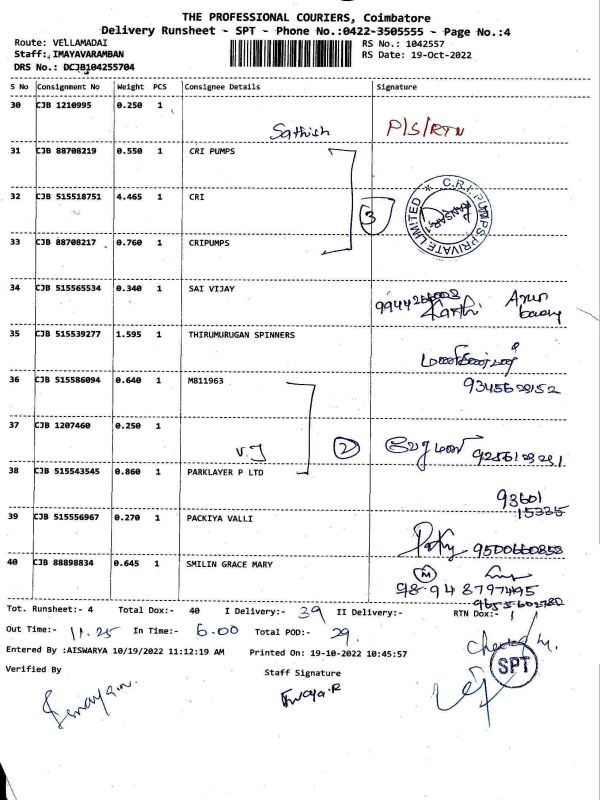 THE PROFESSIONAL COURIERS, Coimbatore
Delivery Runsheet - SPT - Phone No.:0422-3505555 - Page No.:4
Route: VELLAMADAI RS No.: 1042557
Staff: IMAYAVARAMBAN RS Date: 19-Oct-2022
DRS No.: DCJB104255704
S No Consignment No Weight PCS Consignee Details Signature
30 CJB 1210995 0.250 1
Sathish P/S/RTN
31 CJB 88708219 0.550 1 CRI PUMPS
32 CJB 515518751 4.465 1 CRI
3 C.R.I. PUMPS PRIVATE LIMITED
33 CJB 88708217 0.760 1 CRIPUMPS
34 CJB 515565534 0.340 1 SAI VIJAY
Karthi
35 CJB 515539277 1.595 1 THIRUMURUGAN SPINNERS
36 CJB 515586094 0.640 1 M811963
37 CJB 1207460 0.250 1
V.J 2
38 CJB 515543545 0.860 1 PARKLAYER P LTD
93601
15335
39 CJB 515556967 0.270 1 PACKIYA VALLI
9500660853
40 CJB 88898834 0.645 1 SMILIN GRACE MARY
M
98-94 8797495
Tot. Runsheet:- 4 Total Dox:- 40 I Delivery:- 39 II Delivery:- RTN Dox:- 1
Out Time:- 11.25 In Time:- 6.00 Total POD:- 29
Entered By :AISWARYA 10/19/2022 11:12:19 AM Printed On: 19-10-2022 10:45:57
SPT
Verified By Staff Signature